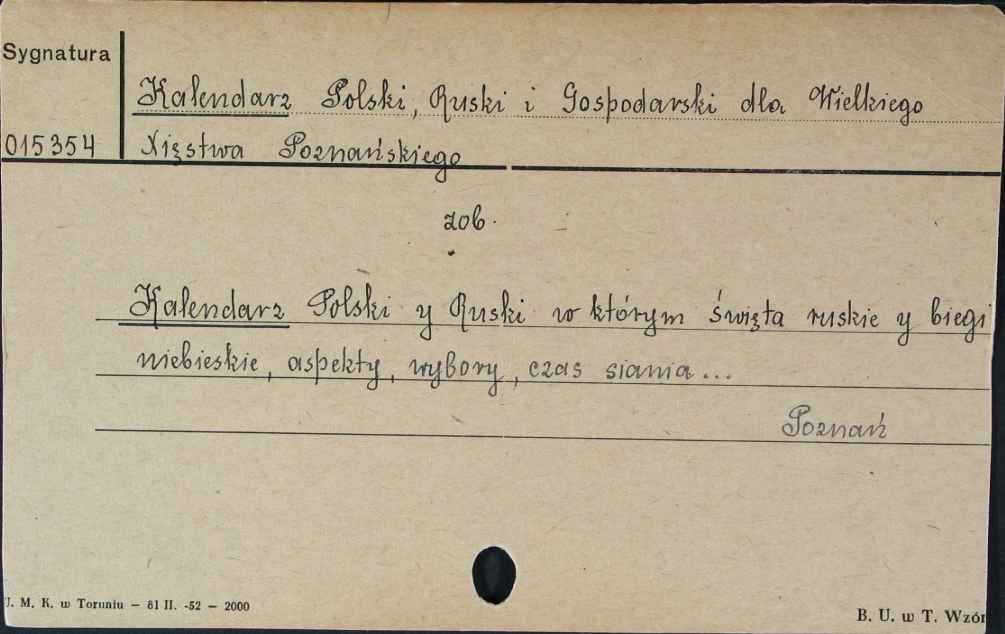 Sygnatura
Kalendarz Polski, Ruski i Gospodarski dla Wielkiego
015354 Xięstwa Poznańskiego
zob.
Kalendarz Polski y Ruski w którym święta ruskie y biegi
niebieskie, aspekty, wybory, czas siania...
Poznań
J. M. K. w Toruniu — 81 II. -52 — 2000
B. U. w T. Wzór